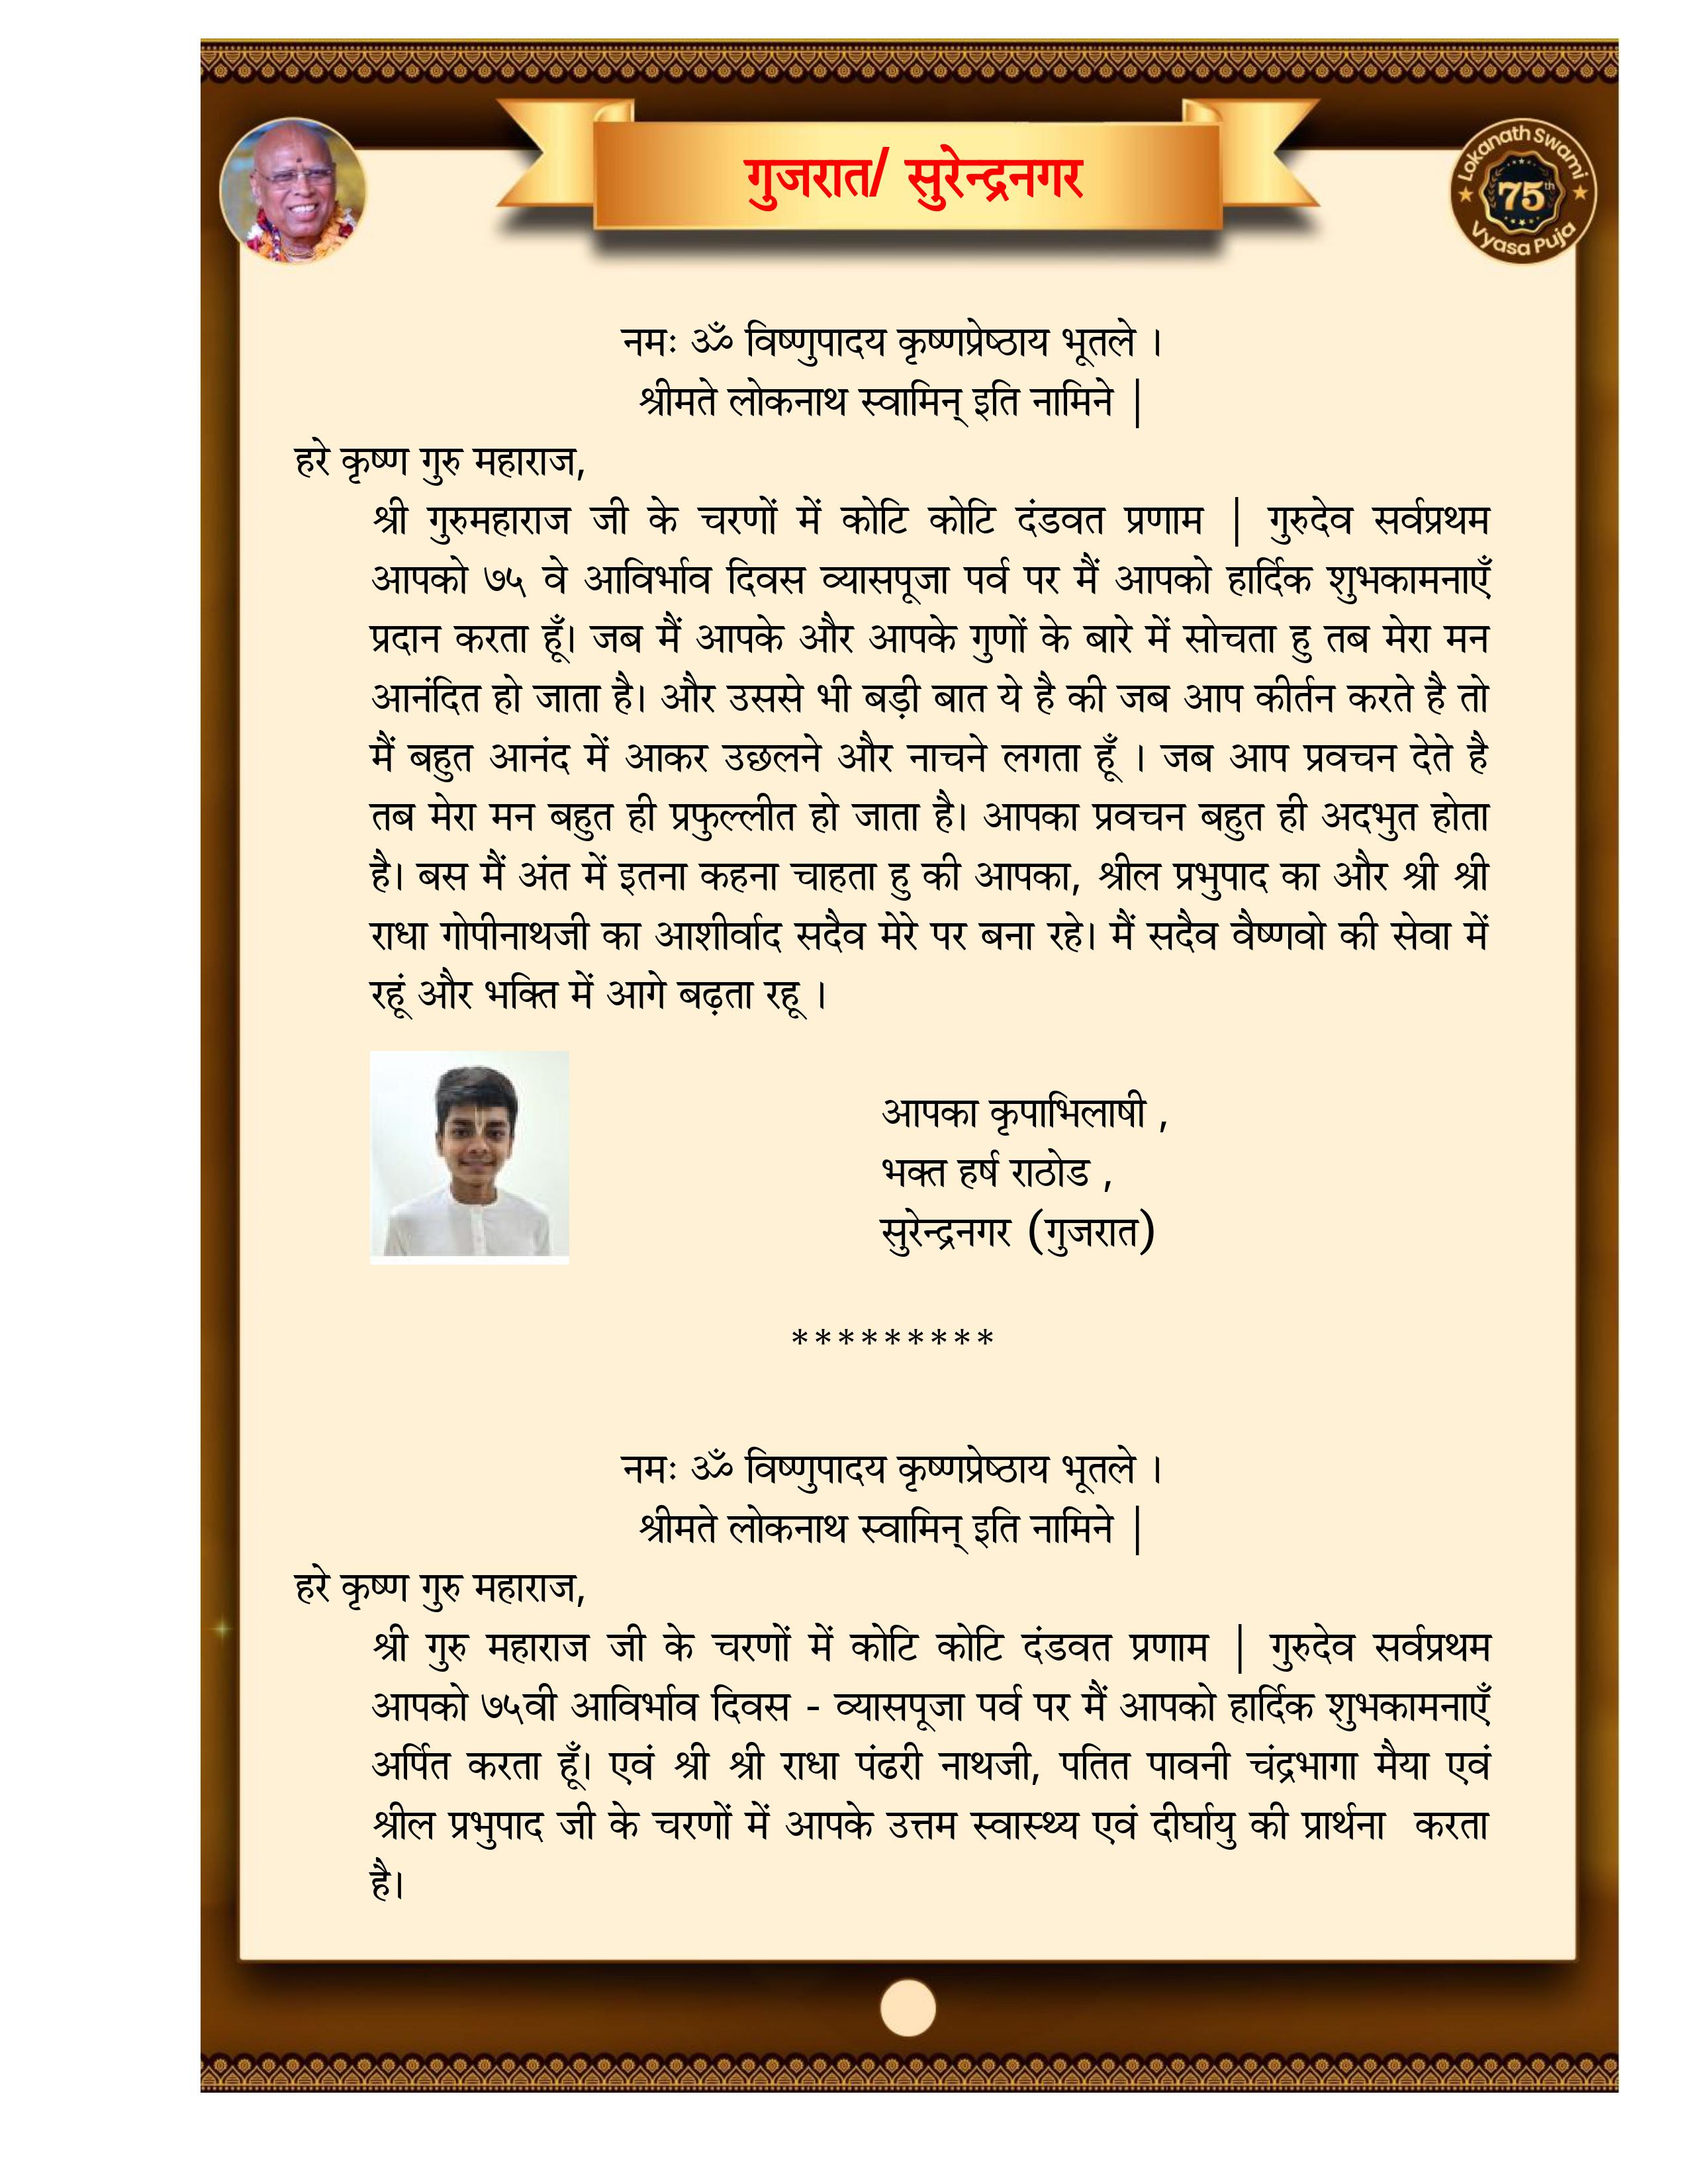 गुजरात/ सुरेन्द्रनगर
Lokanath Swami
75th
Vyasa Puja
नमः ॐ विष्णुपादय कृष्णप्रेष्ठाय भूतले ।
श्रीमते लोकनाथ स्वामिन् इति नामिने |
हरे कृष्ण गुरु महाराज,
श्री गुरुमहाराज जी के चरणों में कोटि कोटि दंडवत प्रणाम | गुरुदेव सर्वप्रथम
आपको ७५ वे आविर्भाव दिवस व्यासपूजा पर्व पर मैं आपको हार्दिक शुभकामनाएँ
प्रदान करता हूँ। जब मैं आपके और आपके गुणों के बारे में सोचता हु तब मेरा मन
आनंदित हो जाता है। और उससे भी बड़ी बात ये है की जब आप कीर्तन करते है तो
मैं बहुत आनंद में आकर उछलने और नाचने लगता हूँ । जब आप प्रवचन देते है
तब मेरा मन बहुत ही प्रफुल्लीत हो जाता है। आपका प्रवचन बहुत ही अदभुत होता
है। बस मैं अंत में इतना कहना चाहता हु की आपका, श्रील प्रभुपाद का और श्री श्री
राधा गोपीनाथजी का आशीर्वाद सदैव मेरे पर बना रहे। मैं सदैव वैष्णवो की सेवा में
रहूं और भक्ति में आगे बढ़ता रहू ।
आपका कृपाभिलाषी ,
भक्त हर्ष राठोड ,
सुरेन्द्रनगर (गुजरात)
*********
नमः ॐ विष्णुपादय कृष्णप्रेष्ठाय भूतले ।
श्रीमते लोकनाथ स्वामिन् इति नामिने |
हरे कृष्ण गुरु महाराज,
श्री गुरु महाराज जी के चरणों में कोटि कोटि दंडवत प्रणाम | गुरुदेव सर्वप्रथम
आपको ७५वी आविर्भाव दिवस - व्यासपूजा पर्व पर मैं आपको हार्दिक शुभकामनाएँ
अर्पित करता हूँ। एवं श्री श्री राधा पंढरी नाथजी, पतित पावनी चंद्रभागा मैया एवं
श्रील प्रभुपाद जी के चरणों में आपके उत्तम स्वास्थ्य एवं दीर्घायु की प्रार्थना करता
है।